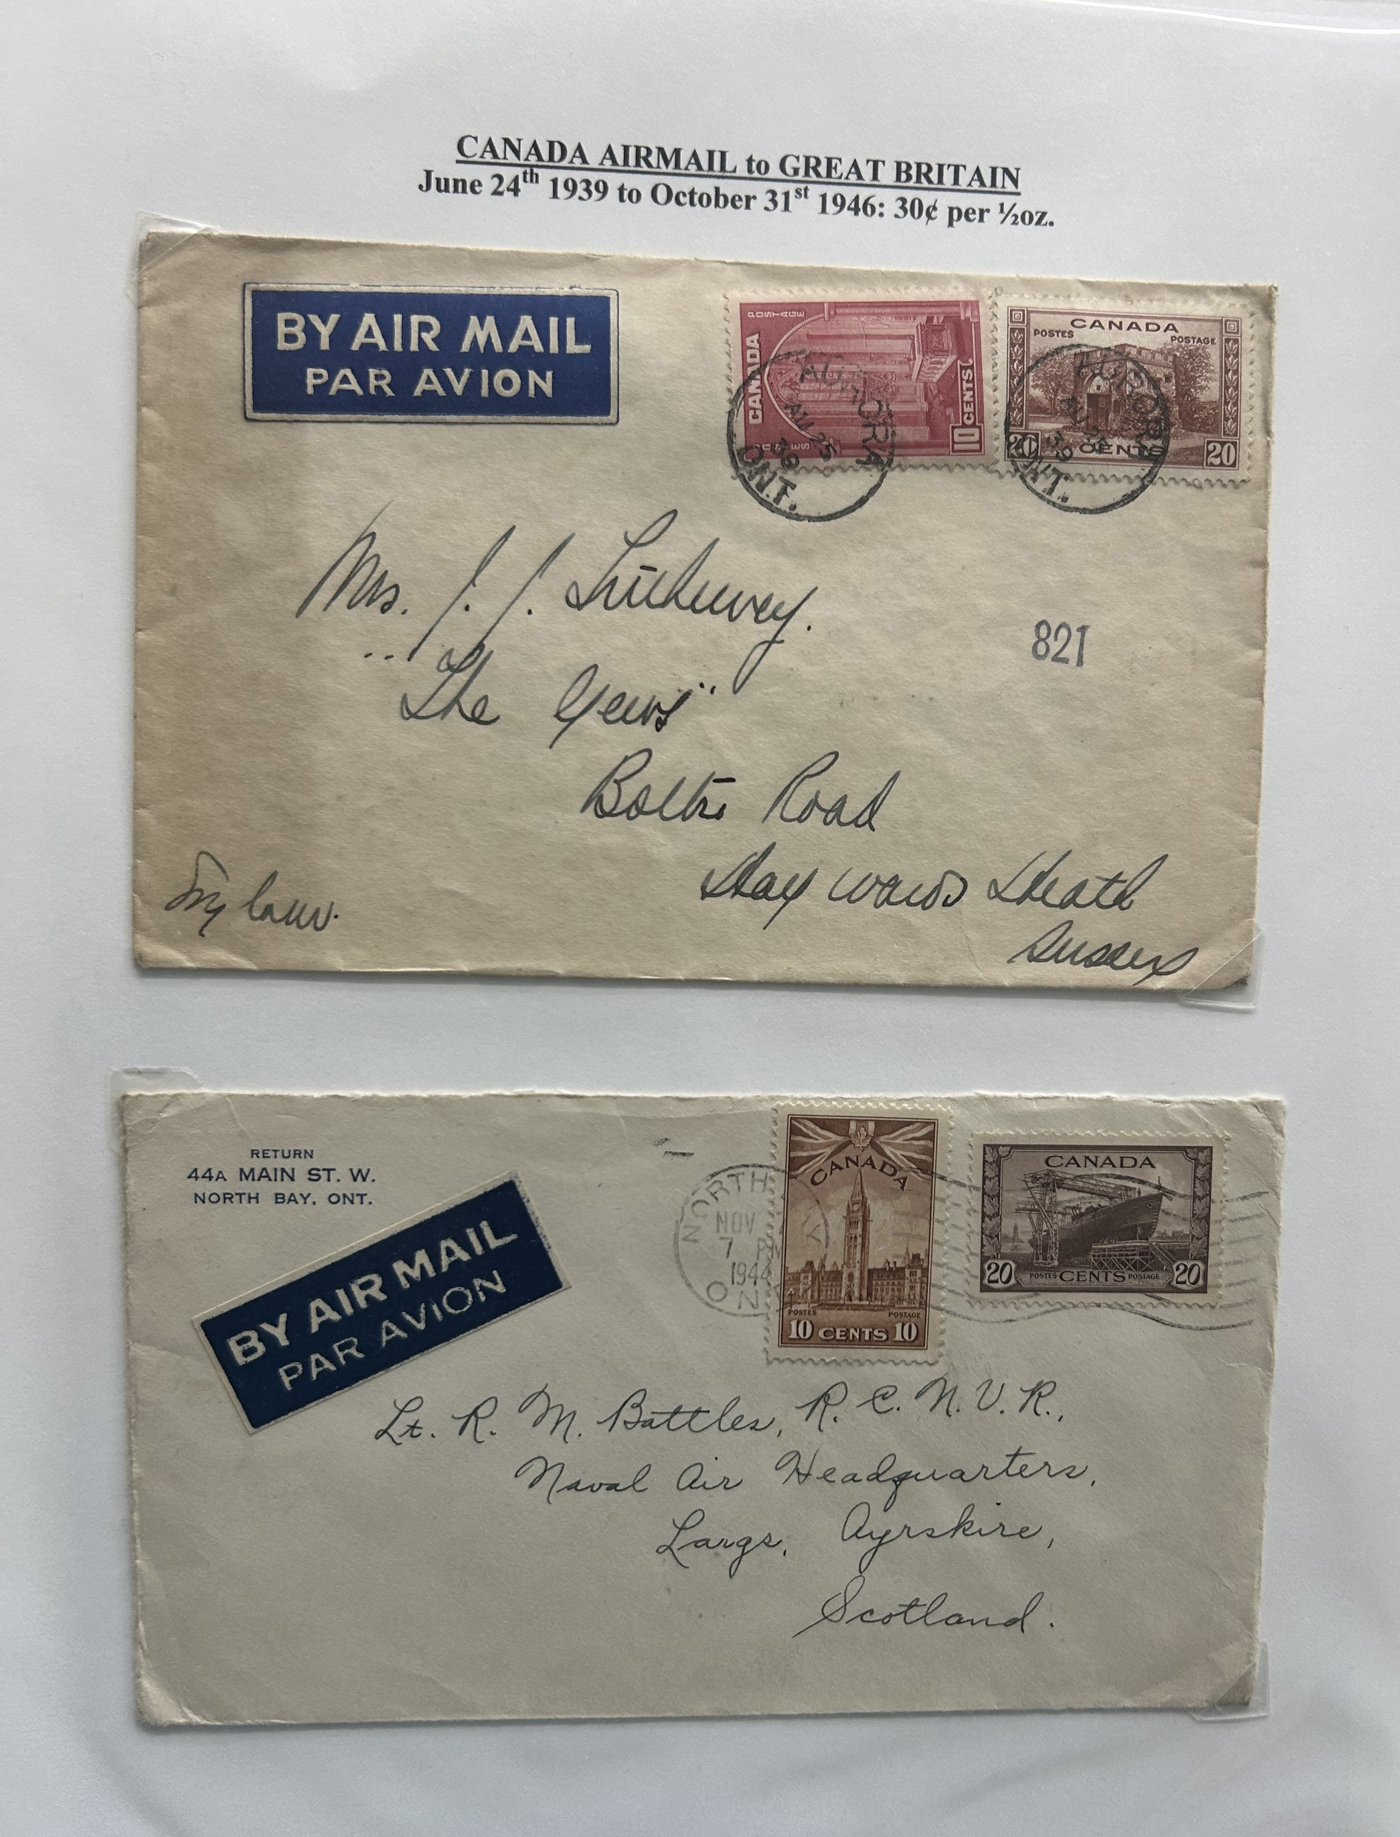 CANADA AIRMAIL to GREAT BRITAIN
June 24th 1939 to October 31st 1946: 30¢ per ½oz.
BY AIR MAIL
PAR AVION
POSTAGE
CANADA
10 CENTS
CANADA
POSTES POSTAGE
20 CENTS 20
AURORA
25
39
ONT.
AURORA
39
ONT.
Mrs. J. J.
"The Yews"
Road
821
Haywards Heath
Sussex
RETURN
44A MAIN ST. W.
NORTH BAY, ONT.
BY AIR MAIL
PAR AVION
NORTH
NOV
7
1944
ON
CANADA
POSTES POSTAGE
10 CENTS 10
CANADA
20 POSTES CENTS POSTAGE 20
Lt. R. M. Battles, R.C.N.V.R.,
Naval Air Headquarters,
Largs, Ayrshire,
Scotland.